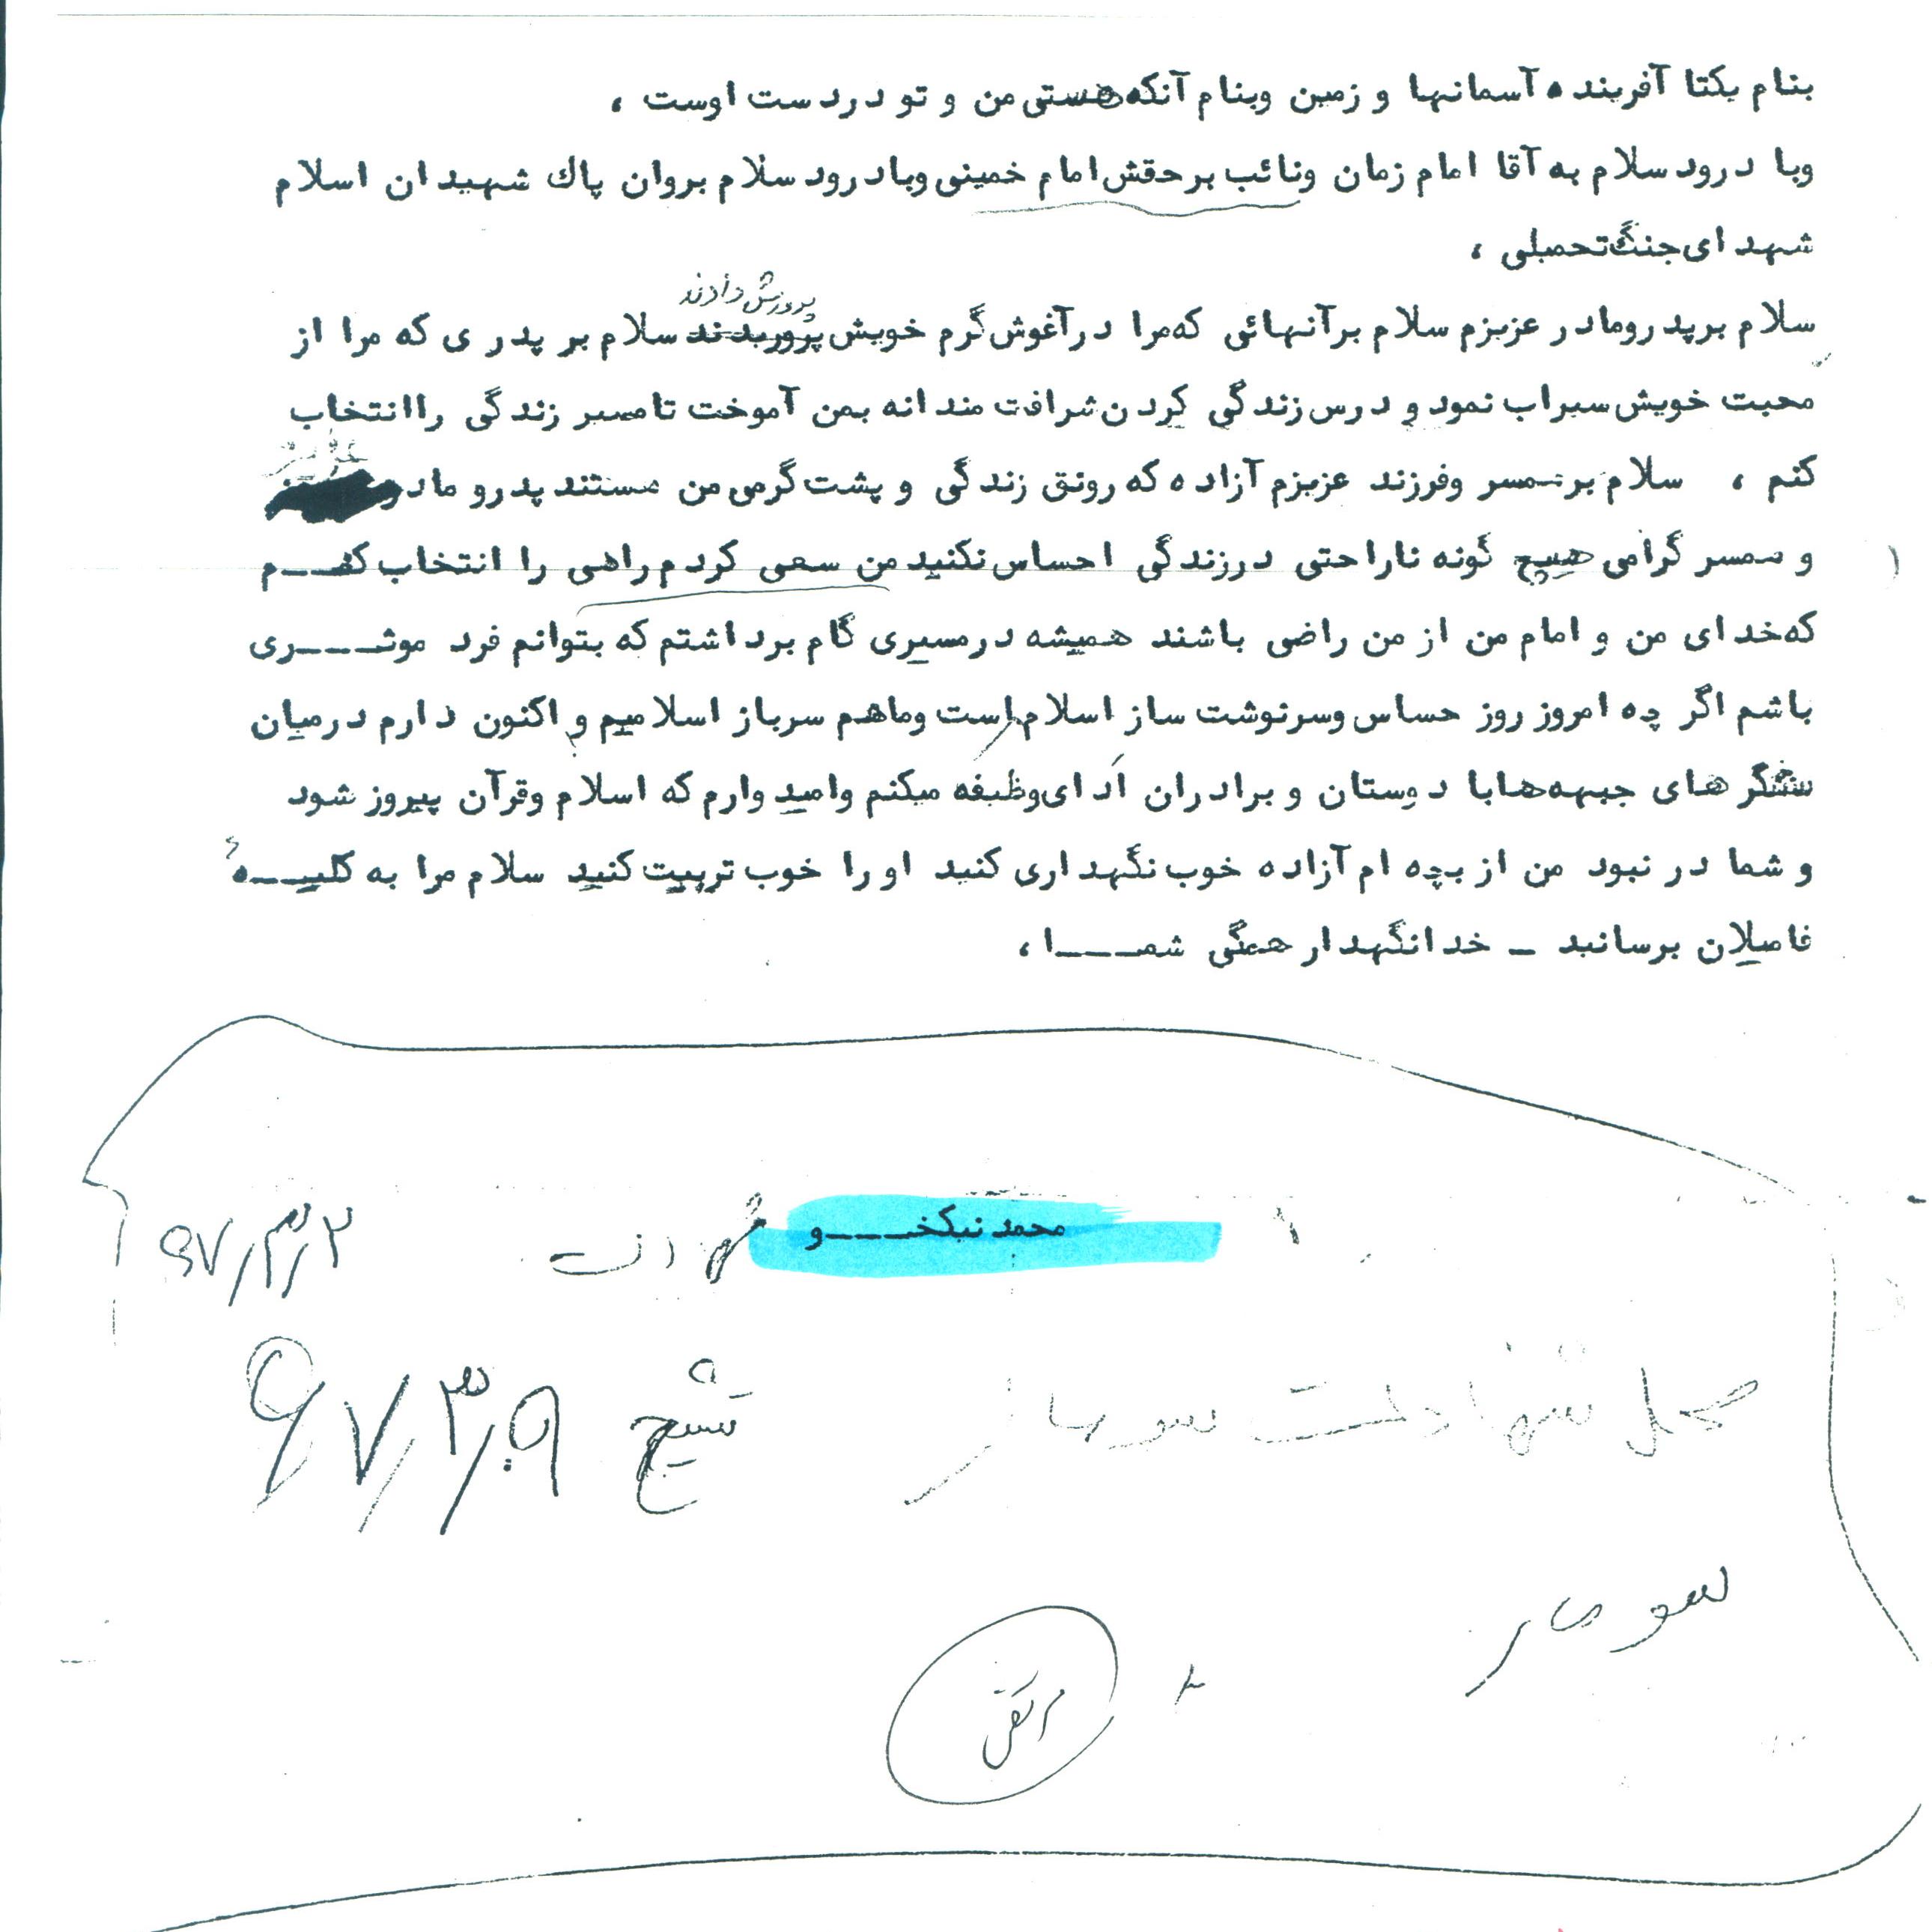 بنام یکتا آفریننده آسمانها و زمین وبنام آنکه هستی من و تو دردست اوست ،
وبا درود سلام به آقا امام زمان ونائب برحقش امام خمینی وبادرود سلام بروان پاك شهیدان اسلام
شهدای جنگ تحمیلی ،
پرورش دادند
سلام برپدرومادر عزیزم سلام برآنهائی که مرا درآغوش گرم خویش پروریدند سلام بر پدری که مرا از
محبت خویش سیراب نمود و درس زندگی کردن شرافت مندانه بمن آموخت تا مسیر زندگی را انتخاب
کنم ، سلام بر همسر وفرزند عزیزم آزاده که رونق زندگی و پشت گرمی من هستند پدرو مادر
و همسر گرامی هیچ گونه ناراحتی درزندگی احساس نکنید من سعی کردم راهی را انتخاب کنم
که خدای من و امام من از من راضی باشند همیشه درمسیری گام برداشتم که بتوانم فرد موثری
باشم اگر چه امروز روز حساس وسرنوشت ساز اسلام است وماهم سرباز اسلامیم و اکنون دارم درمیان
سنگرهای جبهه هابا دوستان و برادران ادای وظیفه میکنم وامید وارم که اسلام وقرآن پیروز شود
و شما در نبود من از بچه ام آزاده خوب نگهداری کنید او را خوب تربیت کنید سلام مرا به کلیه
فامیلان برسانید ــ خدانگهدار همگی شما ،
محمد نیکخو ۶۷/۳/۲
محل شهادت سومار تشیع ۶۷/۳/۹
سومار